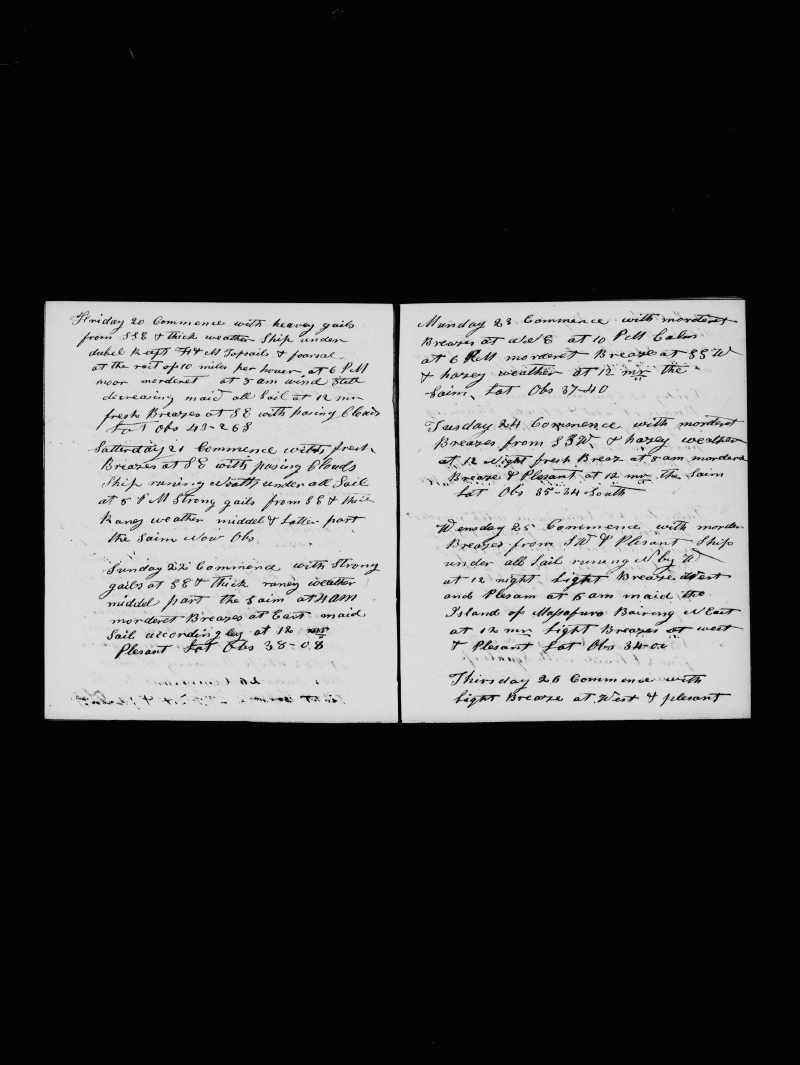 Friday 20 Commence with heavey gails
from SSE & thick weather Ship under
dubel Reeft F & M Topsails & foarsal
at the rait of 10 miles per houer, at 6 PM
moor morderet at 8 am wind Still
decreasing maid all Sail at 12 mr
fresh Breazes at SE with pasing Clouds
Lat Obs 43-26 S
Satterday 21 Commence with fresh
Breazes at SE with pasing Clouds
Ship runing North under all Sail
at 8 PM Strong gails from SE & thick
Raney weather middel & Latter part
the Saim Now Obs
Sunday 22 Commence with Strong
gails at SE & thick raney weather
middel part the Saim at 4 am
morderet Breazes at East maid
Sail accordingley at 12 mr
Plesant Lat Obs 38-08
Munday 23 Commence with morderet
Breazes at at 10 PM Calm
at 6 PM morderet Breaze at SSW
& hazey weather at 12 mr the
Saim, Lat Obs 37-40
Tuesday 24 Commence with morderet
Breazes from SSW. & hazey weather
at 12 Night fresh Breaz at 8 am morderet
Breaze & Plesant at 12 mr the Saim
Lat Obs 35-34 South
Wensday 25 Commence with morder
Breazes from SW & Plesant Ship
under all Sail runing N by W
at 12 night Light Breaze West
and Plesam at 6 am maid the
Island of Massafuro Bairing N East
at 12 mr Light Breazes at west
& Plesant Lat Obs 34-00
Thirsday 26 Commence with
Light Breaze at West & plesant